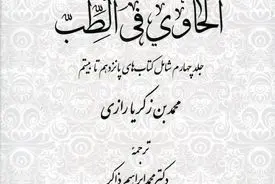 الحاوي في الطب
جلد چهارم شامل کتاب‌های پانزدهم تا بیستم
محمد بن زکریا رازی
ترجمهٔ
دکتر محمد ابراهیم ذاکر